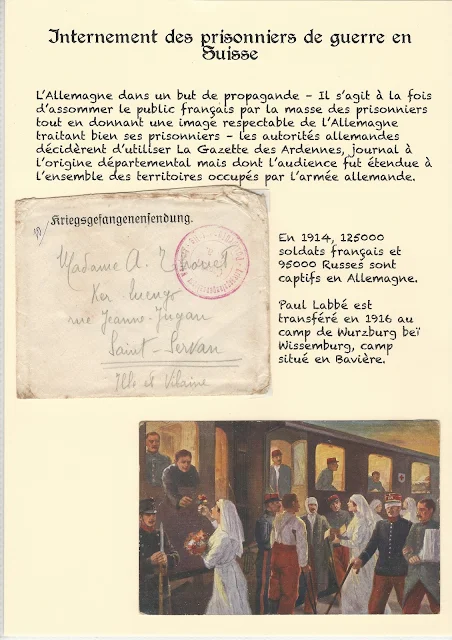 Internement des prisonniers de guerre en
Suisse
L'Allemagne dans un but de propagande – Il s'agit à la fois
d'assommer le public français par la masse des prisonniers
tout en donnant une image respectable de l'Allemagne
traitant bien ses prisonniers – les autorités allemandes
décidèrent d'utiliser La Gazette des Ardennes, journal à
l'origine départemental mais dont l'audience fut étendue à
l'ensemble des territoires occupés par l'armée allemande.
Kriegsgefangenensendung.
Madame A.
Ker
rue Jeanne-Jugan
Saint-Servan
Ille et Vilaine
En 1914, 125000
soldats français et
95000 Russes sont
captifs en Allemagne.
Paul Labbé est
transféré en 1916 au
camp de Wurzburg beï
Wissemburg, camp
situé en Bavière.